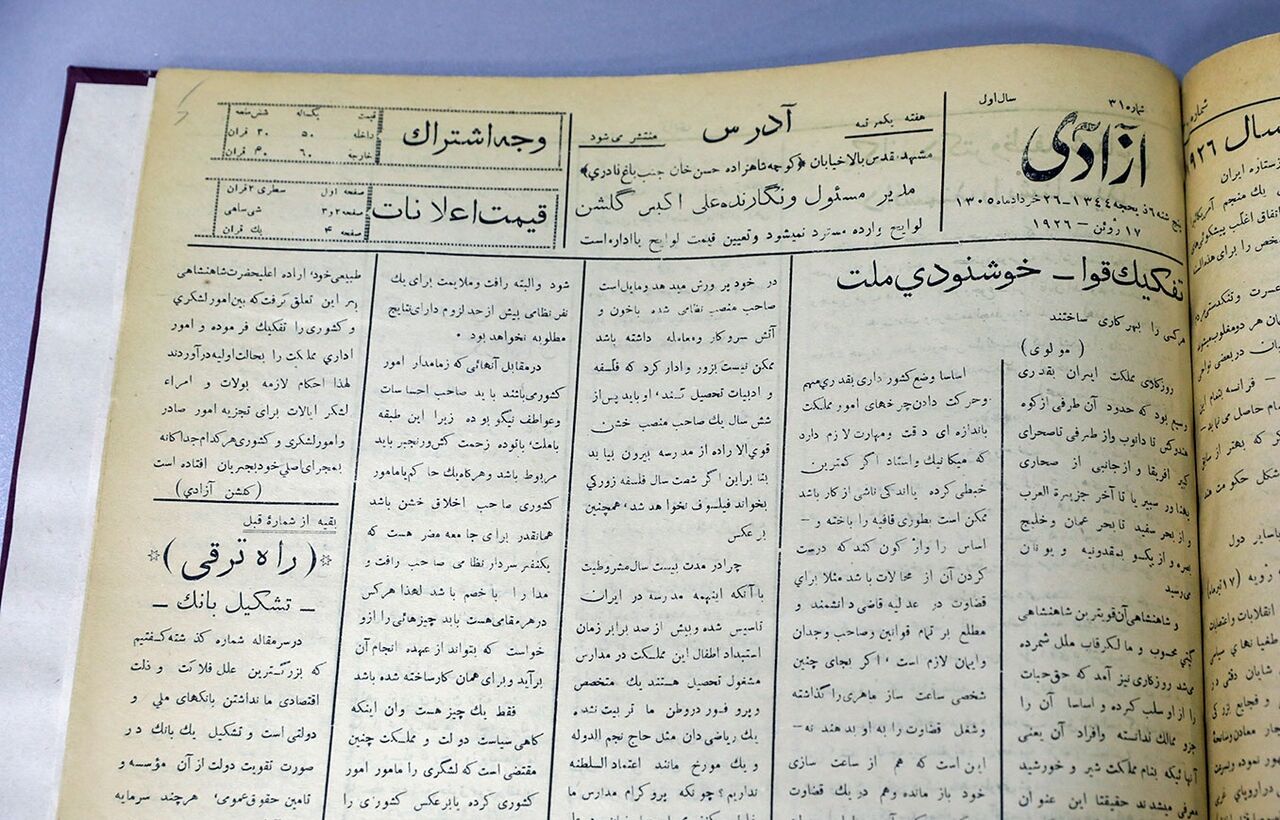 شماره ۳۱
سال اول
آزادی
پنج شنبه ۶ ذیحجه ۱۳۴۴ – ۲۶ خرداد ماه ۱۳۰۵
۱۷ ژوئن – ۱۹۲۶
هفته یکمرتبه
آدرس
منتشر می شود
مشهد، قدس بالا خیابان ﴿کوچه شاهزاده حسن خان جنب باغ نادري﴾
مدیر مسئول و نگارنده علی اکبر گلشن
لوایح وارده مسترد نمیشود و تعیین قیمت لوایح با اداره است
وجه اشتراك
قیمت یکساله ششماهه
داخله ۵۰ ۳۰ قران
خارجه ۶۰ ۴۰ قران
قیمت اعلانات
صفحه اول سطری ۲ قران
صفحه ۲ و ۳ شی ساهی
صفحه ۴ یك قران
تفکیك قوا – خوشنودي ملت
هر کسی را بهر کاری ساختند
(مولوی)
روزگای مملکت ایران بقدری
وسیع بود که حدود آن طرفی از کوه
هندوکش تا دانوب واز طرفی تا صحرای
کبیر افریقا و از جانبی از صحاری
پهناور سیبر یا تا آخر جزیرة العرب
و از بحر سفید تا بحر عمان و خلیج
بصره و از یکسو بمقدونیه و یونان
می رسید
و شاهنشاهی آن قویترین شاهنشاهی
گیتی محسوب و مالکرقاب ملل شمرده
میشد روزگاری نیز آمد که حق حیات
را از او سلب کرده و اساسا آن را
جزو ممالك ندانسته وافراد آن یعنی
آنها ئیکه بنام مملکت شیر و خورشید
معرفی میشدند حقیقتا این عنوان
اساسا وضع کشور داری بقدری مهم
وحرکت دادن چرخهای امور مملکت
باندازه ای دقت و مهارت لازم دارد
که میکانیك واستاد اگر کمترین
خبطی کرده یا اندکی ناشی از کار باشد
ممکن است بطوری قافیه را باخته و –
اساس را واژگون کند که درست
کردن آن از محالات باشد مثلا برای
قضاوت در عدلیه قاضی دانشمند و
مطلع بر تمام قوانین وصاحب وجدان
وایمان لازم است ، اگر بجای چنین
شخصی ساعت ساز ماهری را گذاشته
وشغل قضاوت را به او بدهند نه –
این است که هم از ساعت سازی
خود باز مانده وهم در یك قضاوت
در خود پرورش میدهد و مایل است
صاحب منصب نظامی شده با خون و
آتش سروکار و معامله داشته باشد
ممکن نیست بزور وادار کرد که فلسفه
و ادبیات تحصیل کند ، او باید پس از
شش سال یك صاحب منصب خشن
قوي الاراده از مدرسه بیرون بیاید
بنا براین اگر شصت سال فلسفه زورکی
بخواند فیلسوف نخواهد شد ، همچنین
بر عکس
چرا در مدت بیست سال مشروطیت
با آنکه اینهمه مدرسه در ایران
تاسیس شده و بیش از صد برابر زمان
استبداد اطفال این مملکت در مدارس
مشغول تحصیل هستند یك متخصص
و پروفسور در وطن ما تربیت نشد ه
یك ریاضی دان مثل حاج نجم الدوله
و یك مورخ مانند اعتماد السلطنه
نداریم ؟ چونکه پروگرام مدارس ما
شود والبته رافت وملایمت برای یك
نفر نظامی بیش از حد لزوم دارای نتایج
مطلوبه نخواهد بود
در مقابل آنهائی که زمامدار امور
کشوری میباشند باید صاحب احساسات
وعواطف نیکو بوده زیرا این طبقه
باملت ، باتوده زحمت کش ورنجبر باید
مربوط باشد و هرگاه یك حاکم یا مامور
کشوری صاحب اخلاق خشن باشد
همانقدر برای جامعه مضر هست که
یکنفر سردار نظامی صاحب رافت و
مدارا با خصم باشد لهذا هر کس
در هر مقامی هست باید چیزهائی را از و
خواست که بتواند از عهده انجام آن
برآید و برای همان کار ساخته شده باشد
فقط یك چیز هست وان اینکه
گاهی سیاست دولت و مملکت چنین
مقتضی است که لشگری را مامور امور
کشوری کرده یا بر عکس کشوری را
طبیعی خود ، اراده اعلیحضرت شاهنشاهی
بر این تعلق گرفت که بین امور لشگری
و کشوری را تفکیك فرموده و امور
اداري مملکت را بحالت اولیه درآوردند
لهذا احکام لازمه بولات و امراء
لشکر ایالات برای تجزیه امور صادر
وامور لشگری و کشوری هر کدام جداگانه
بمجرای اصلی خود بجریان افتاده است
(گلشن آزادی)
بقیه از شمارهٔ قبل
(راه ترقی)
– تشکیل بانك –
در سرمقاله شماره گذشته گفتیم
که بزرگترین علل فلاکت و ذلت
اقتصادی ما نداشتن بانکهای ملی و
دولتی است و تشکیل یك بانك در
صورت تقویت دولت از آن مؤسسه و
تامین حقوق عمومی ، هر چند سرمایه
سال
۱۹۲۶